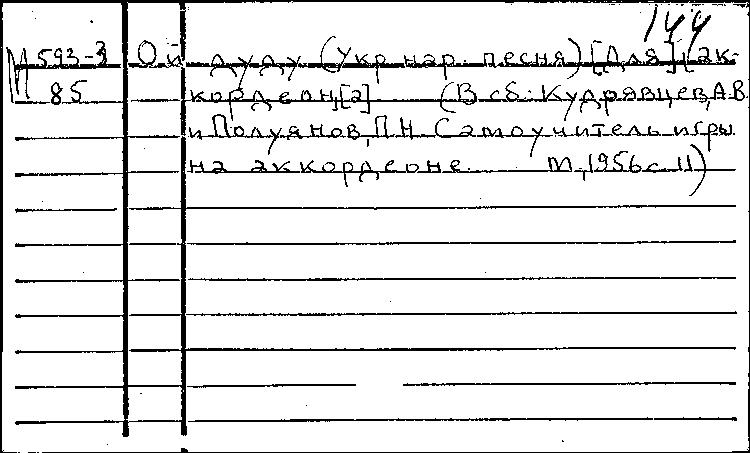 144
М 593-3 Ой дуду (Укр нар. песня) [Для] ак-
85 кордеон,[а] (В сб: Кудрявцев, А.В.
и Полуянов, П.Н. Самоучитель игры
на аккордеоне. М.,1956 с 11)